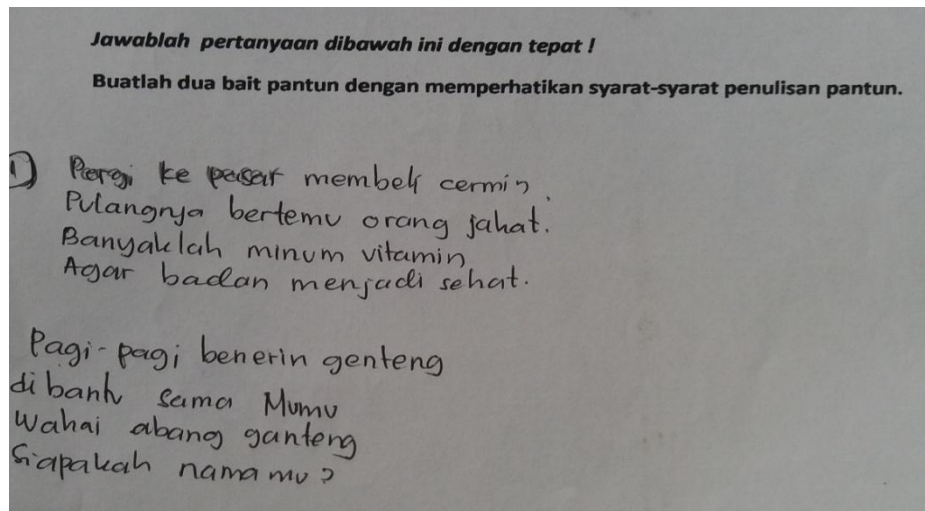 Jawablah pertanyaan dibawah ini dengan tepat !
Buatlah dua bait pantun dengan memperhatikan syarat-syarat penulisan pantun.
1) Pergi ke pasar membeli cermin,
Pulangnya bertemu orang jahat.
Banyaklah minum vitamin
Agar badan menjadi sehat.
Pagi-pagi benerin genteng
dibantu sama Mumu
Wahai abang ganteng
Siapakah nama mu?